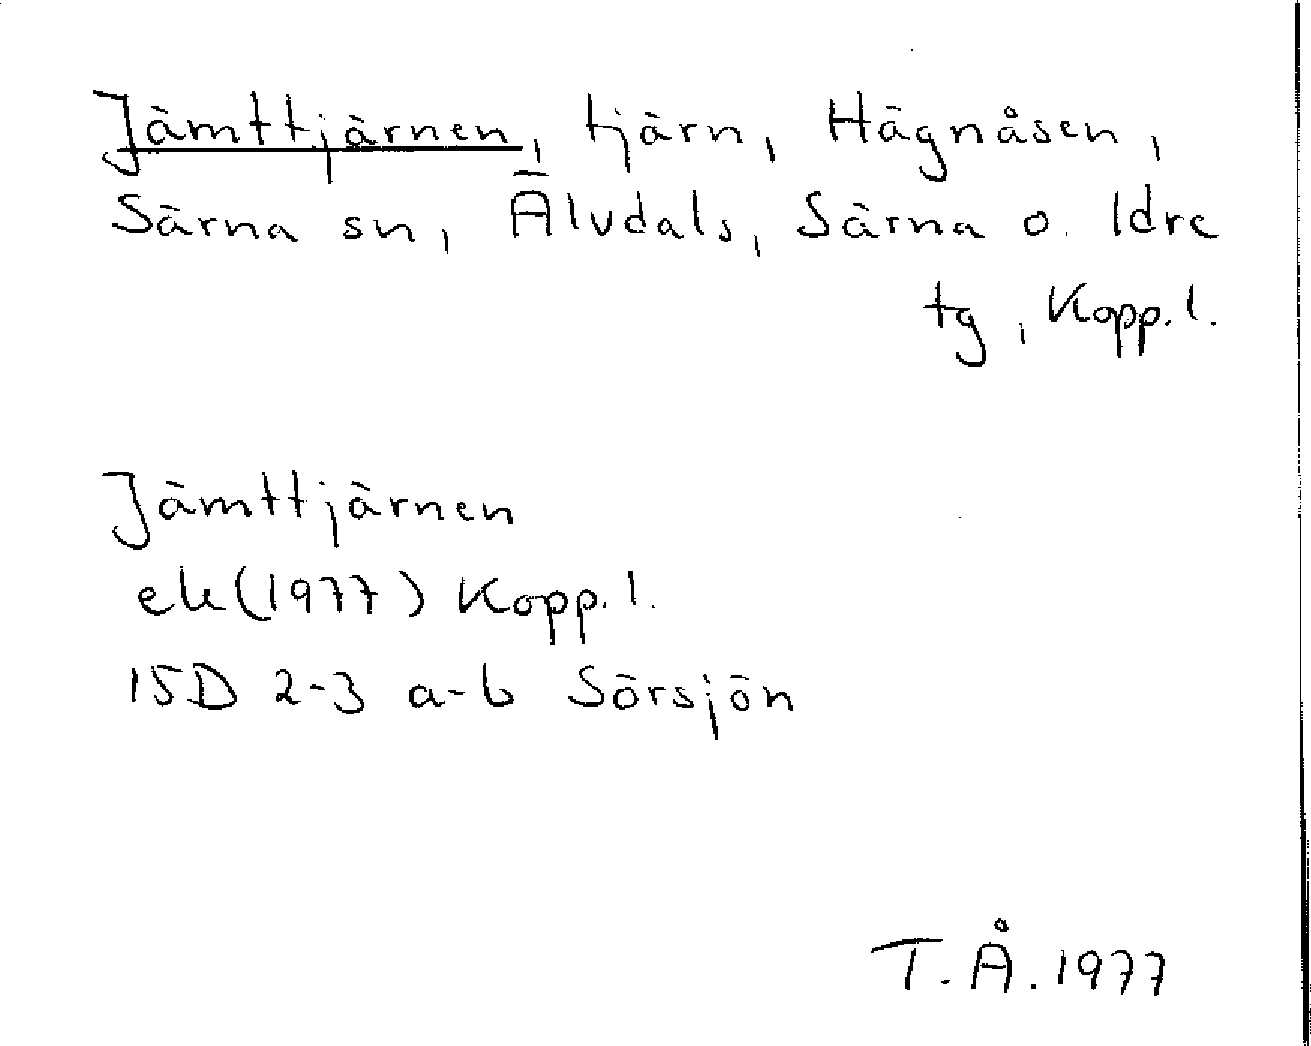 Jämttjärnen, tjärn, Hägnåsen,
Särna sn, Älvdals, Särna o. Idre
tg, Kopp. l.
Jämttjärnen
ek (1977) Kopp. l.
15D 2-3 a-b Sörsjön
T. Å. 1977